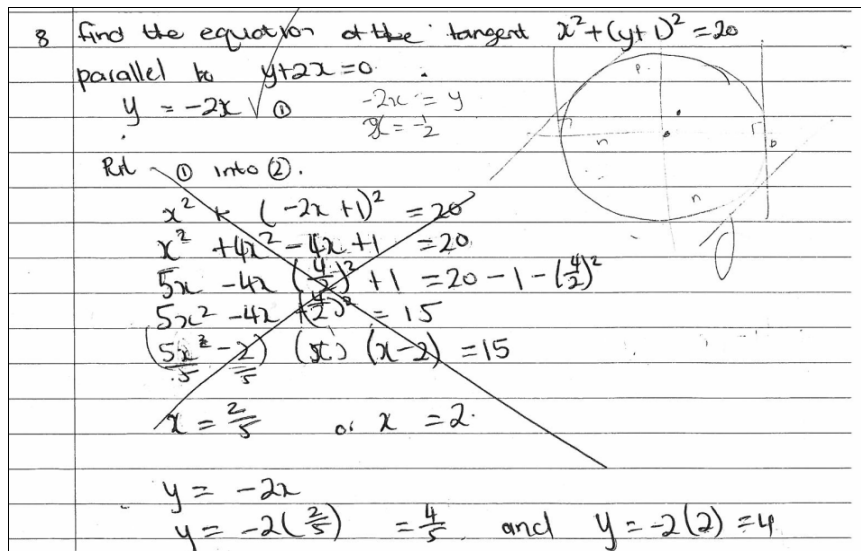 8 find the equation of the tangent x² + (y+1)² = 20
parallel to y+2x=0.
y = -2x ①
-2x = y
x = -1/2
Put ① into ②.
x² + (-2x+1)² = 20
x² + 4x² - 4x + 1 = 20
5x - 4x (4/2)² + 1 = 20 - 1 - (4/2)²
5x² - 4x + (4/2)² = 15
(5x²/5 - 2/5) (x-2) = 15
x = 2/5 or x = 2.
y = -2x
y = -2(2/5) = 4/5 and y = -2(2) = 4
P
n
b
n